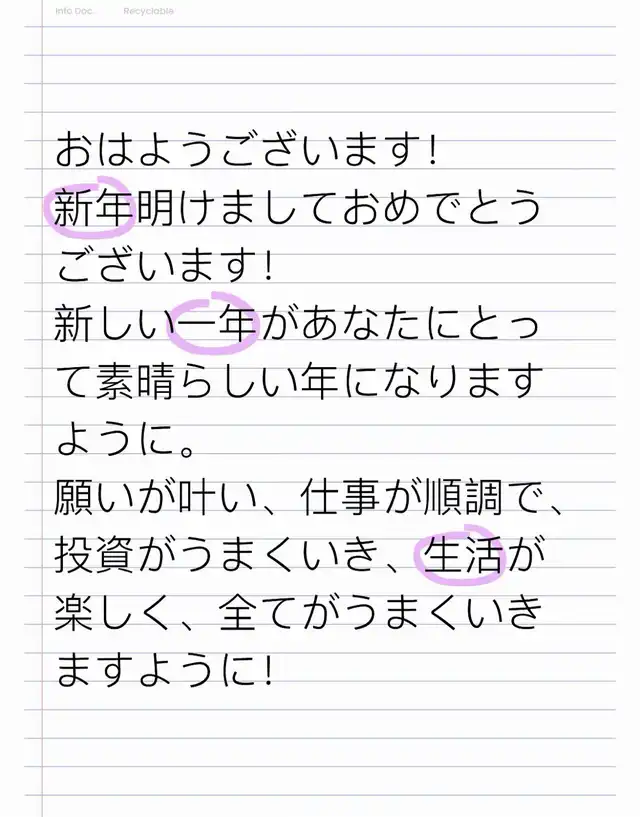 Info Doc. Recyclable
おはようございます!
新年明けましておめでとう
ございます!
新しい一年があなたにとっ
て素晴らしい年になります
ように。
願いが叶い、仕事が順調で、
投資がうまくいき、生活が
楽しく、全てがうまくいき
ますように!